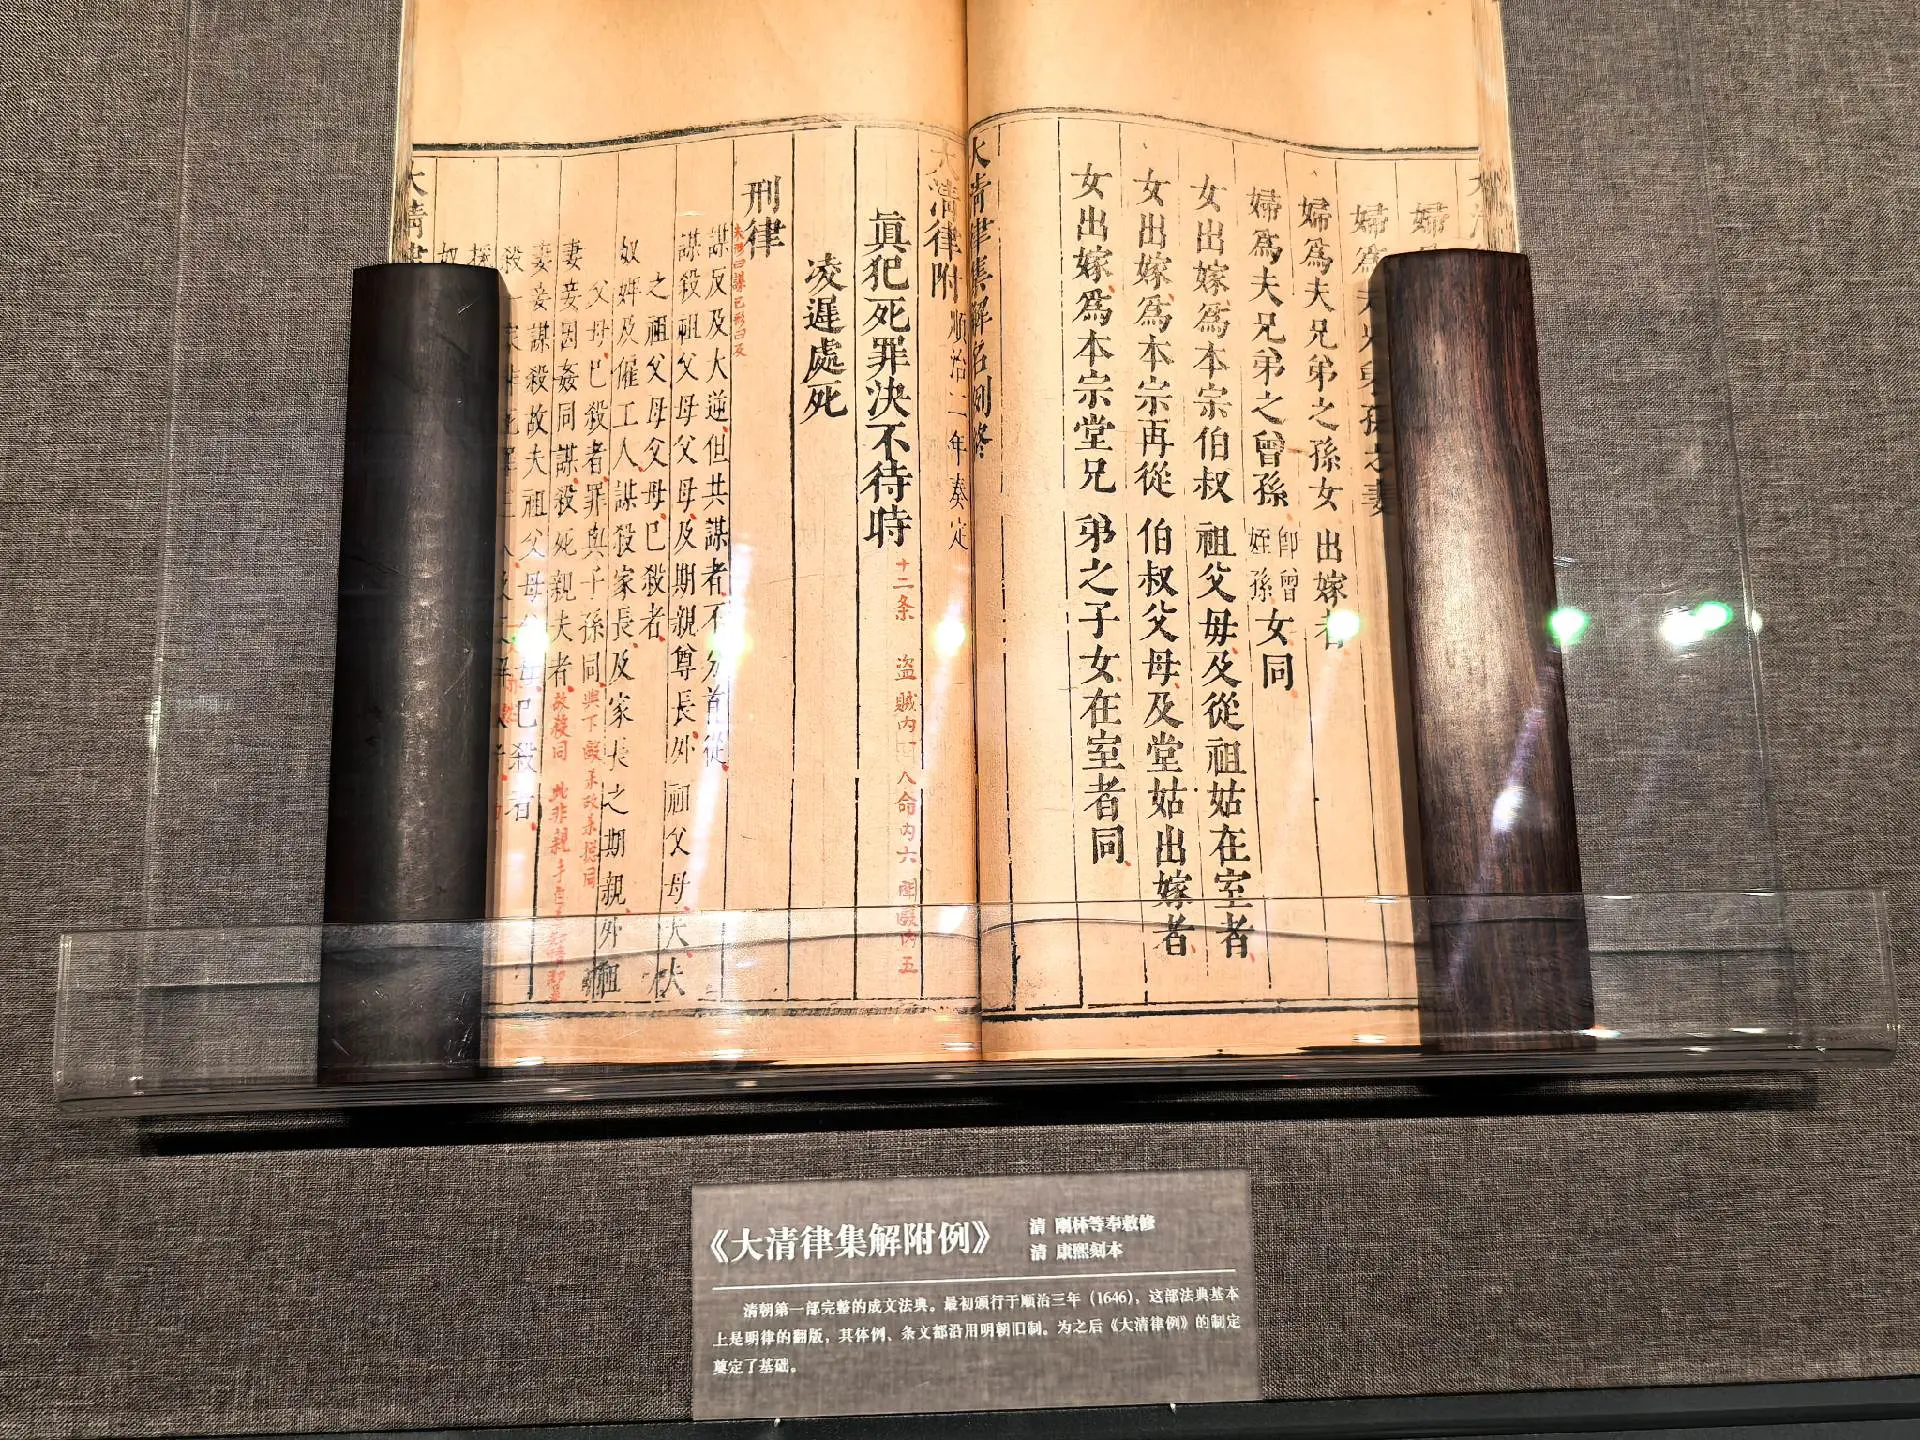 婦
婦爲夫兄弟孫之妻
婦爲夫兄弟之孫女 出嫁者
婦爲夫兄弟之曾孫 卽曾姪孫 女同
女出嫁爲本宗伯叔 祖父母及從祖姑在室者
女出嫁爲本宗再從 伯叔父母及堂姑出嫁者
女出嫁爲本宗堂兄 弟之子女在室者同
大清律集解名例終
大清律附 順治二年奏定
眞犯死罪決不待時 十二条 盗賊内 八命内六 鬪毆内五
凌遲處死
刑律 未形曰謀已形曰反
謀反及大逆但共謀者不分首從
謀殺祖父母父母及期親尊長外祖父母夫夫
之祖父母父母已殺者
奴婢及僱工人謀殺家長及家長之期親外祖
父母已殺者罪與子孫同
妻妾因姦同謀殺死親夫者 故殺同
妻妾謀殺故夫祖父母父母已殺者
殺一家非死罪三人
大清律
《大清律集解附例》
清 剛林等奉敕修
清 康熙刻本
清朝第一部完整的成文法典。最初颁行于顺治三年（1646），这部法典基本
上是明律的翻版，其体例、条文都沿用明朝旧制。为之后《大清律例》的制定
奠定了基础。